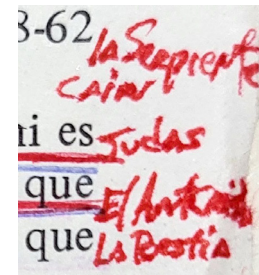 8-62 la Serpiente
Cain
ni es Judas
que El Anticris
que La Bestia